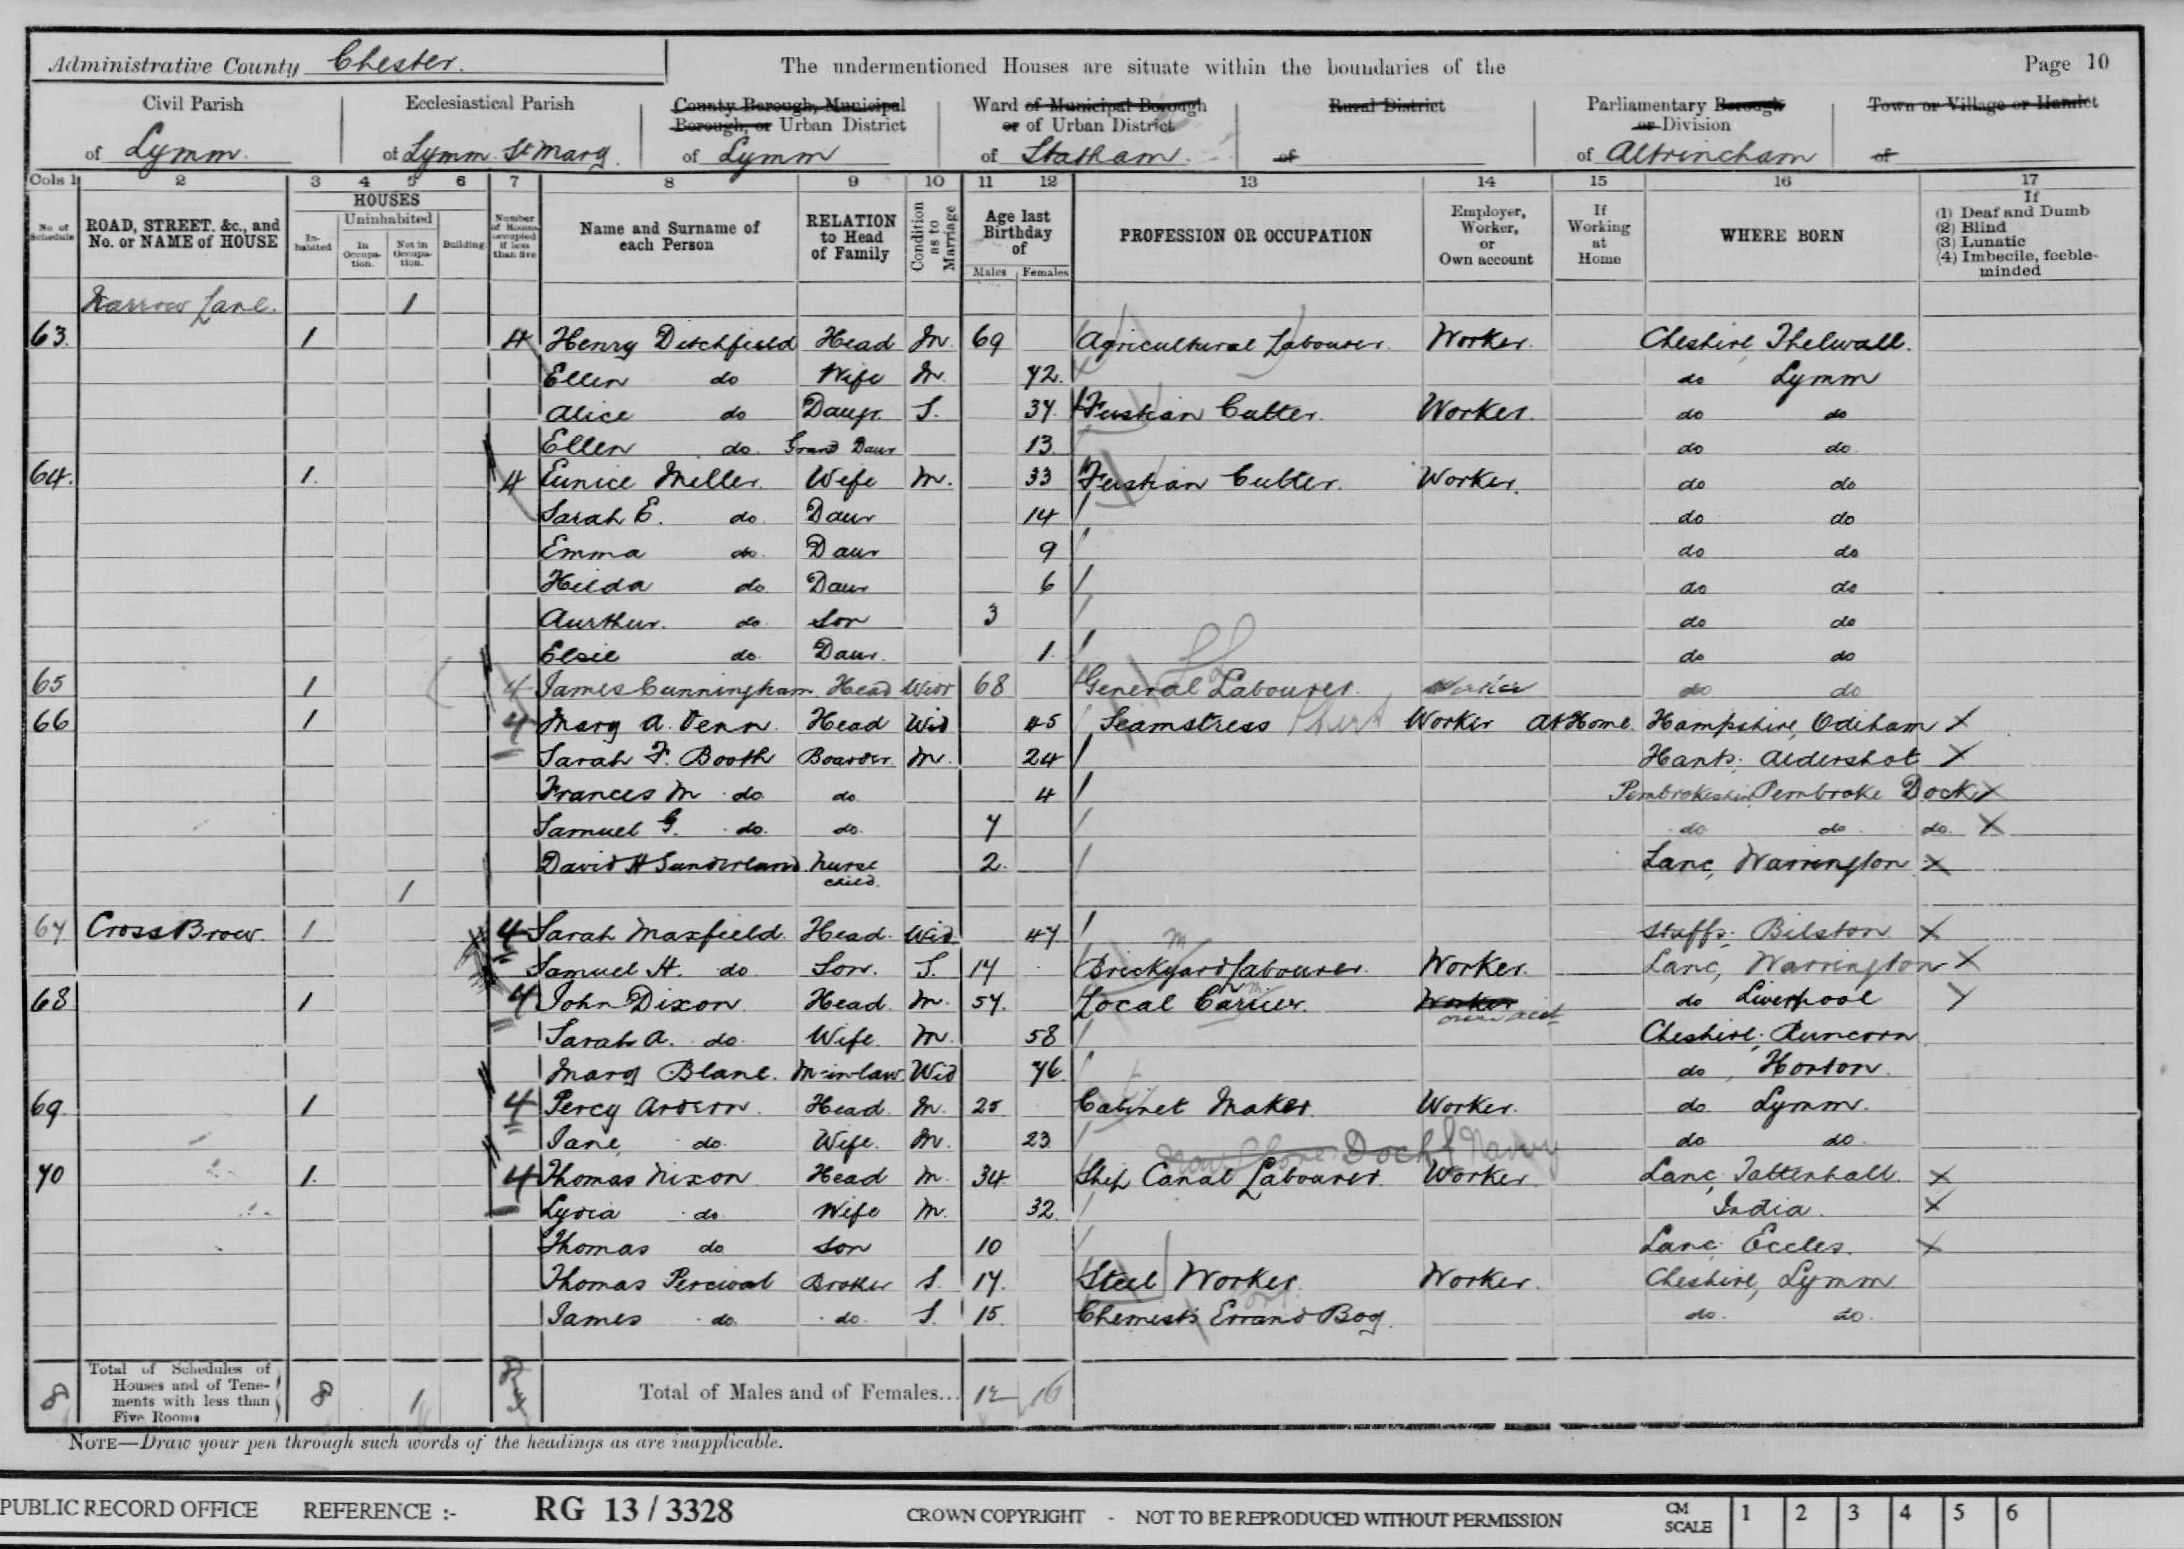 Administrative County Chester. The undermentioned Houses are situate within the boundaries of the Page 10
Civil Parish of Lymm.
Ecclesiastical Parish of Lymm St Mary.
County Borough, Municipal Borough, or Urban District of Lymm
Ward of Municipal Borough or of Urban District of Statham.
Rural District of
Parliamentary Borough or Division of Altrincham
Town or Village or Hamlet of
Cols 1 2 3 4 5 6 7 8 9 10 11 12 13 14 15 16 17
No of Schedule
ROAD, STREET, &c., and No. or NAME of HOUSE
HOUSES
Inhabited
Uninhabited
In Occupation.
Not in Occupation.
Building
Number of Rooms occupied if less than five
Name and Surname of each Person
RELATION to Head of Family
Condition as to Marriage
Age last Birthday of
Males Females
PROFESSION OR OCCUPATION
Employer, Worker, or Own account
If Working at Home
WHERE BORN
If
(1) Deaf and Dumb
(2) Blind
(3) Lunatic
(4) Imbecile, feeble-minded
Narrow Lane. 1
63. 1 4 Henry Ditchfield Head M. 69 Agricultural Labourer. Worker. Cheshire Thelwall.
Ellen do Wife M. 72. do Lymm
Alice do Daugr. S. 37. Fustian Cutter. Worker. do do
Ellen do. Grand Daur 13 do do.
64. 1. 4 Eunice Miller. Wife M. 33 Fustian Cutter. Worker. do do
Sarah E. do. Daur 14 do do
Emma do. Daur 9 do do
Hilda do Daur 6 do do
Aurthur. do. Son 3 do do
Elsie do. Daur. 1. do do
65 1 4 James Cunningham Head Widr 68 General Labourer. Worker do do
66 1 4 Mary A. Venn. Head Wid 45 Seamstress Shirt Worker At Home. Hampshire, Odiham X
Sarah F. Booth Boarder M. 24 Hants. Aldershot X
Frances M do. do. 4 Pembrokeshire, Pembroke Dock X
Samuel G. do. do. 7 do do do. X
David H Sunderland. Nurse child. 2. Lanc, Warrington X
1
67 Cross Brow. 1 4 Sarah Maxfield. Head. Wid 47 Staffs. Bilston X
Samuel H. do Son. S. 17 Brickyard Labourer. Worker. Lanc, Warrington X
68 1 4 John Dixon. Head. M. 57. Local Carrier. Worker own acct do Liverpool X
Sarah A. do. Wife. M. 58 Cheshire. Runcorn
Mary Blane. M-in-law. Wid 76. do, Horton.
69 1 4 Percy Ardern. Head. M. 25 Cabinet Maker. Worker. do. Lymm.
Jane, do. Wife. M. 23 do do.
Dock Navvy
70 1. 4 Thomas Nixon Head M. 34 Ship Canal Labourer. Worker. Lanc, Tattenhall. X
Lydia do. Wife M. 32. India. X
Thomas do Son 10 Lanc. Eccles. X
Thomas Percival Broker S. 17. Steel Worker. Worker. Cheshire, Lymm
James do. do. S. 15. Chemist's Errand Boy. do. do.
8 Total of Schedules of Houses and of Tenements with less than Five Rooms 8 1 8 Total of Males and of Females... 12 16
NOTE—Draw your pen through such words of the headings as are inapplicable.
PUBLIC RECORD OFFICE REFERENCE :- RG 13 / 3328 CROWN COPYRIGHT - NOT TO BE REPRODUCED WITHOUT PERMISSION CM SCALE 1 2 3 4 5 6